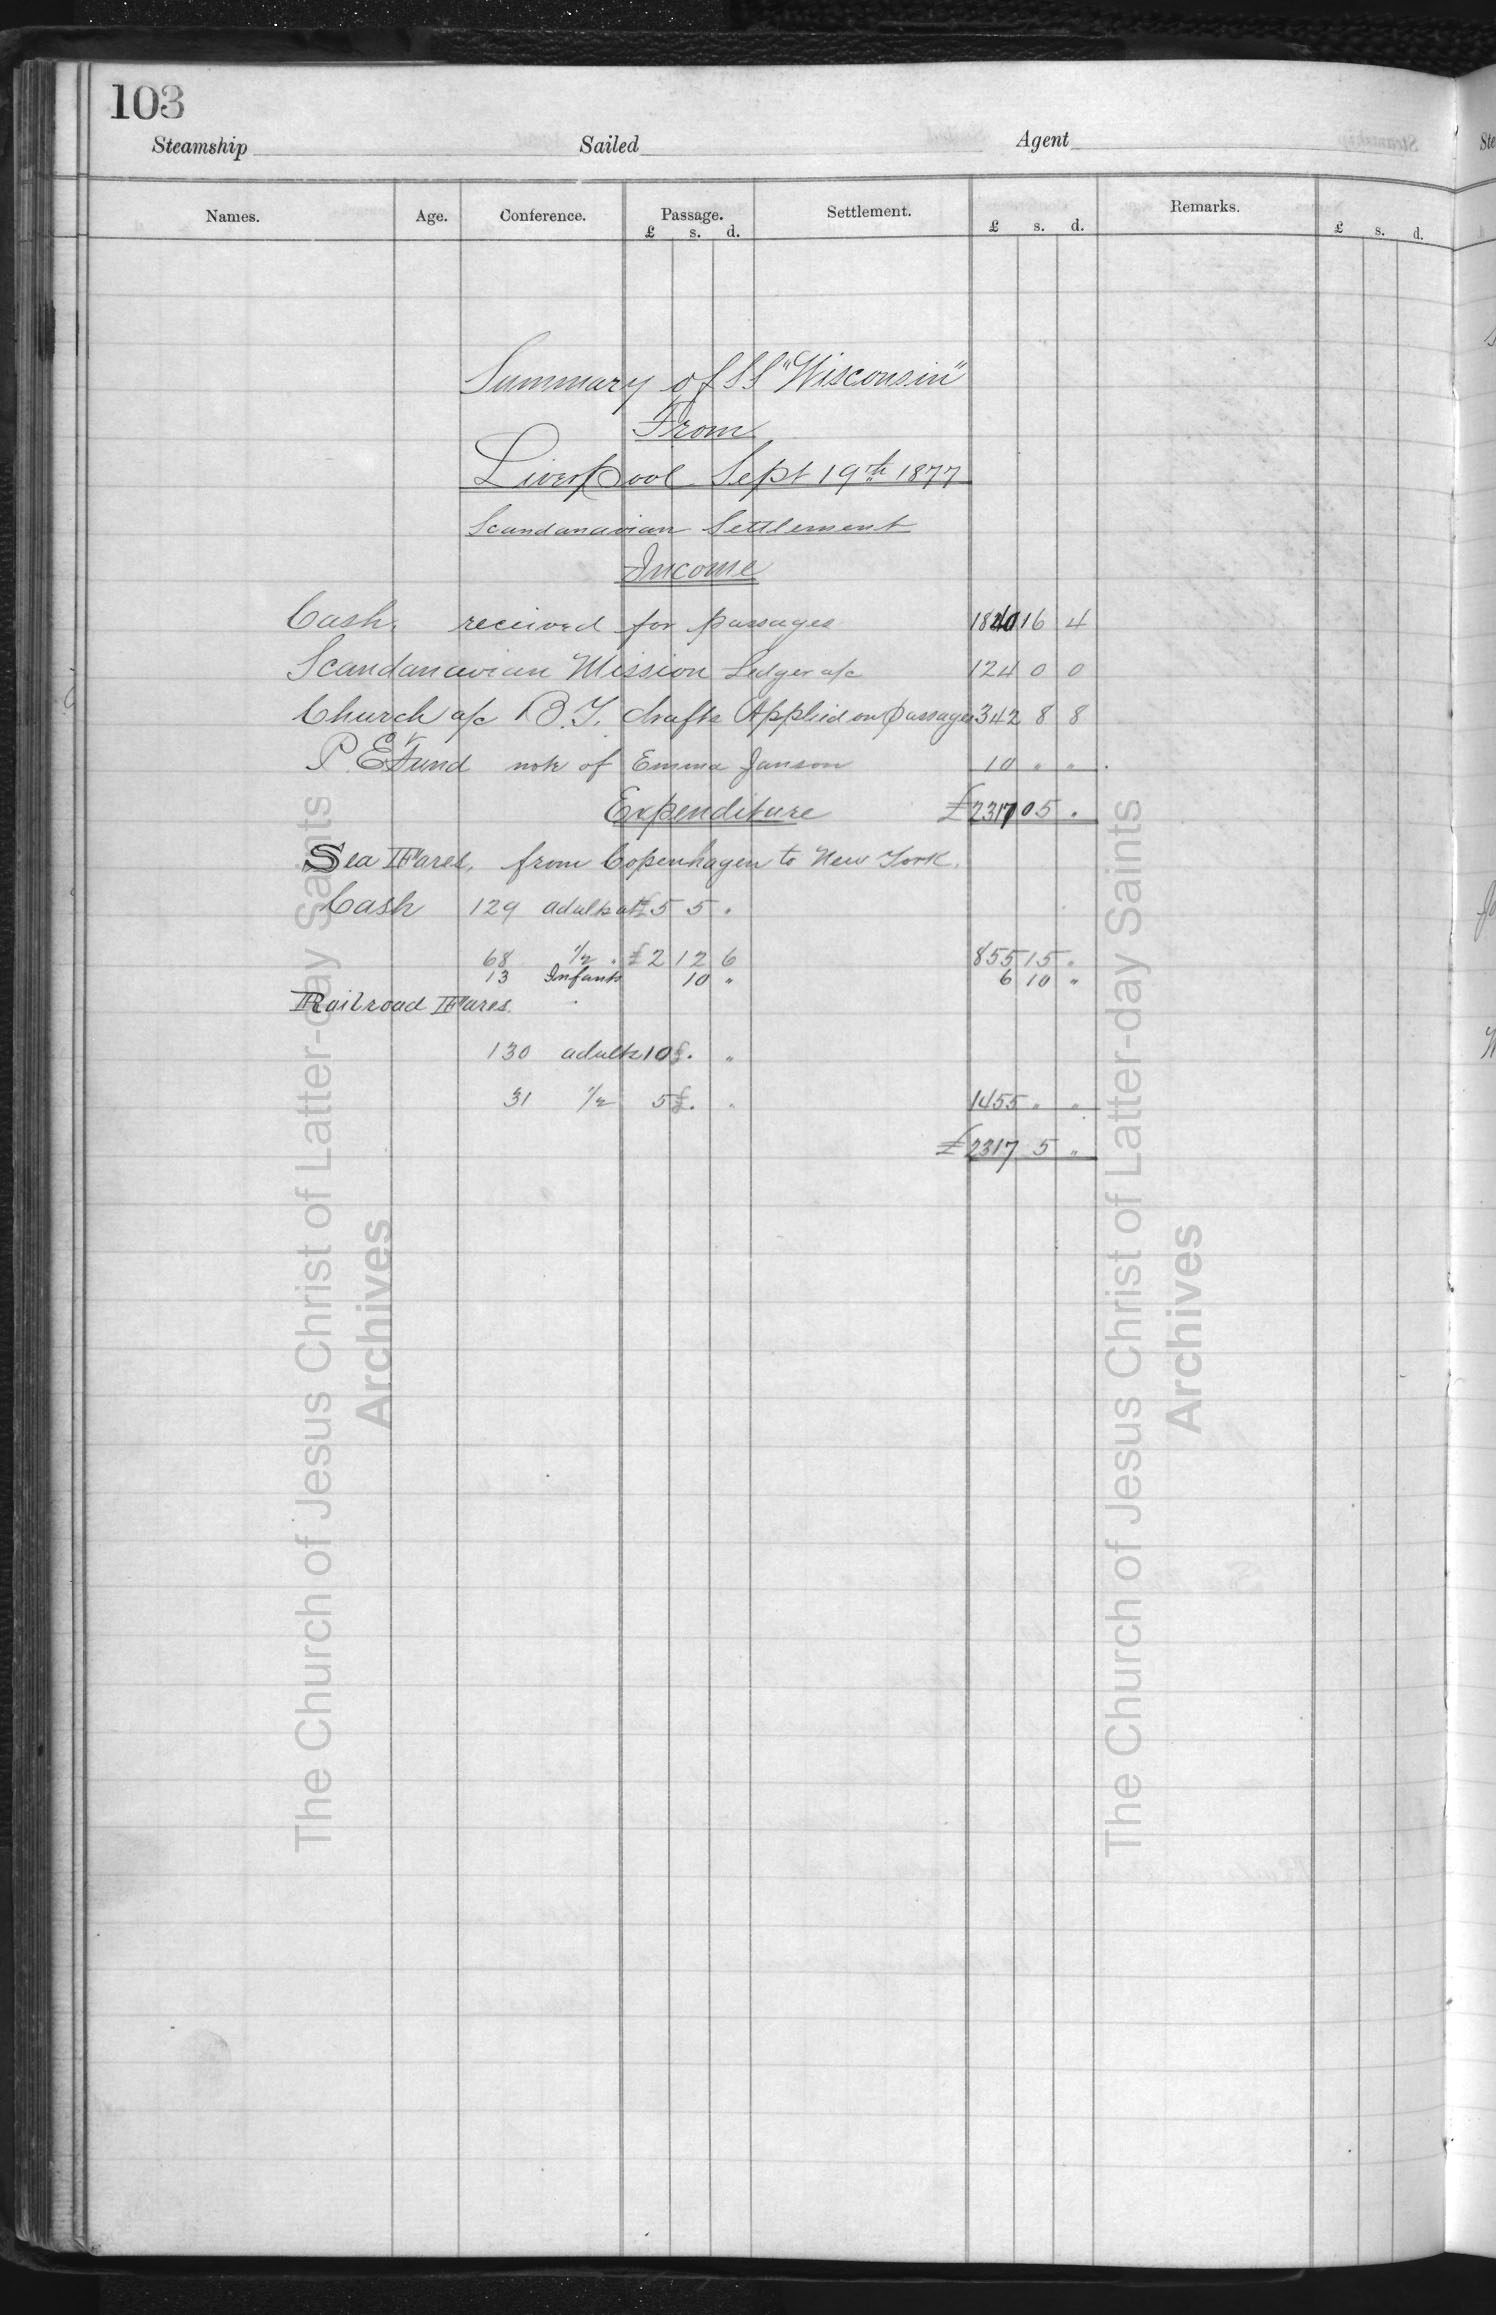 103
Steamship Sailed Agent
Names. Age. Conference. Passage. Settlement. Remarks.
£ s. d. £ s. d. £ s. d.
Summary of SS "Wisconsin"
From
Liverpool Sept 19th 1877
Scandanavian Settlement
Income
Cash, received for passages 1840 16 4
Scandanavian Mission Ledger a/c 124 0 0
Church a/c B.Y. drafts Applied on passages 342 8 8
P. E. Fund note of Emma Janson 10 " "
Expenditure £2317 05 .
Sea Fares, from Copenhagen to New York.
Cash 129 adults at £5 5 "
68 1/2 " £2 12 6 855 15 "
13 Infants 10 " 6 10 "
Railroad Fares.
130 adults 10£. "
31 1/2 5£. " 1455 " "
£2317 5 "
The Church of Jesus Christ of Latter-day Saints
Archives
The Church of Jesus Christ of Latter-day Saints
Archives